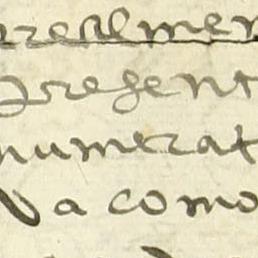 realmen
presenc
numerat
va como